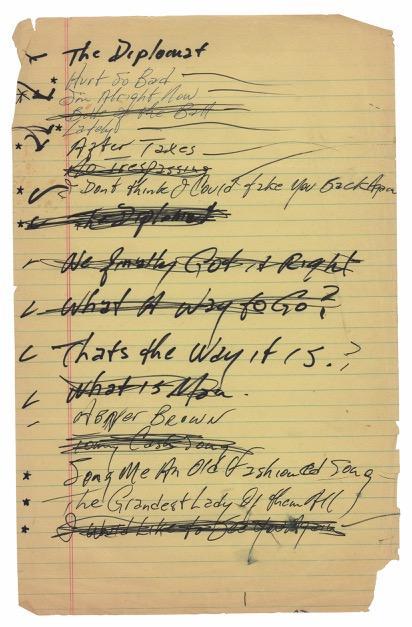 The Diplomat
Hurt So Bad
I'm Alright Now
Belle of the Ball
Lately
After Taxes
No Trespassing
Dont think I Could take You Back Again
The Diplomat
We finally Got it Right
What A Way to Go?
Thats the Way it is.?
What is Man.
Hopper Brown
Song
Song Me An Old Fashioned Song
The Grandest Lady Of them All
I Would Like To See You Again